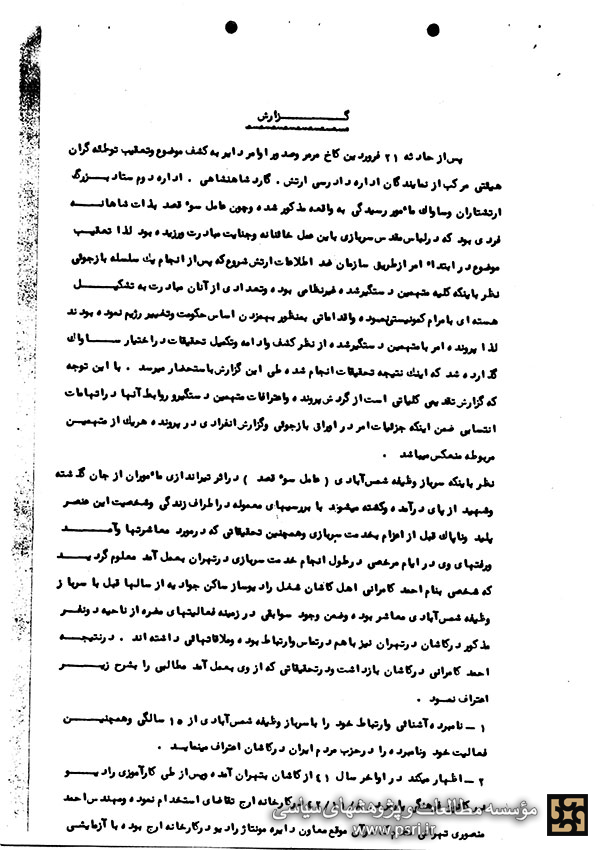 گـــــزارش
پس از حادثه ۲۱ فروردین کاخ مرمر وصدور اوامر دایر به کشف موضوع وتعقیب توطئه گران
هیئتی مرکب از نمایندگان اداره دادرسی ارتش . گارد شاهنشاهی . اداره دوم ستاد بـــزرگ
ارتشتاران وساواک مأمور رسیدگی به واقعه مذکور شده وچون عامل سوء قصد بذات شاهانــه
فردی بود که درلباس مقدس سربازی باین عمل خائنانه وجنایت مبادرت ورزیده بود لذا تعقیب
موضوع در ابتداء امر ازطریق سازمان ضد اطلاعات ارتش شروع که پس از انجام یک سلسله بازجوئی
نظر باینکه کلیه متهمین دستگیر شده غیرنظامی بوده وتعدادی از آنان مبادرت به تشکیـــل
هسته ای بامرام کمونیستی نموده واقداماتی بمنظور بهم زدن اساس حکومت وتغییر رژیم نموده بودند
لذا پرونده امر بامتهمین دستگیر شده از نظر کشف وادامه وتکمیل تحقیقات در اختیار ســاواک
گذارده شد که اینک نتیجه تحقیقات انجام شده طی این گزارش باستحضار میرسد . با این توجه
که گزارش تقدیمی کلیاتی است از گردش پرونده واعترافات متهمین دستگیر و روابط آنها در اتهامات
انتسابی ضمن اینکه جزئیات امر در اوراق بازجوئی وگزارش انفرادی در پرونده هریک از متهمیــن
مربوطه منعکس میباشد .
نظر باینکه سرباز وظیفه شمس آبادی ( عامل سوء قصد ) در اثر تیراندازی مأموران از جان گذشته
وشهید از پای در آمده وکشته میشوند با بررسیهای معموله در اطراف زندگی وشخصیت این عنصر
پلید وناپاک قبل از اعزام بخدمت سربازی وهمچنین تحقیقاتی که درمورد معاشرتها وآمـــد
ورفتهای وی در ایام مرخصی درطول انجام خدمت سربازی درتهران بعمل آمد معلوم گردیـــد
که شخصی بنام احمد کامرانی اهل کاشان شغل رادیوساز ساکن جوادیه از سالها قبل با سرباز
وظیفه شمس آبادی معاشر بوده وضمن وجود سوابقی در زمینه فعالیتهای مضره از ناحیه دونفر
مذکور در کاشان درتهران نیز باهم درتماس وارتباط بوده وملاقاتهائی داشته اند . درنتیجــه
احمد کامرانی درکاشان بازداشت ودرتحقیقاتی که از وی بعمل آمد مطالبی را بشرح زیــر
اعتراف نمـود .
۱ ـ نامبرده آشنائی وارتباط خود را باسرباز وظیفه شمس آبادی از ۱۵ سالگی وهمچنیـــن
فعالیت خود ونامبرده را درحزب مردم ایران در کاشان اعتراف مینماید .
۲ ـ اظهار میکند در اواخر سال ۴۱ از کاشان بتهران آمده وپس از طی کارآموزی رادیـــو
در کارخانه ارج تقاضای استخدام نموده ومهندس احمد
منصوری تهرانی موقع معاون دایره مونتاژ رادیو درکارخانه ارج بوده با آزمایشی
مؤسسه مطالعات و پژوهشهای سیاسی
www.psri.ir